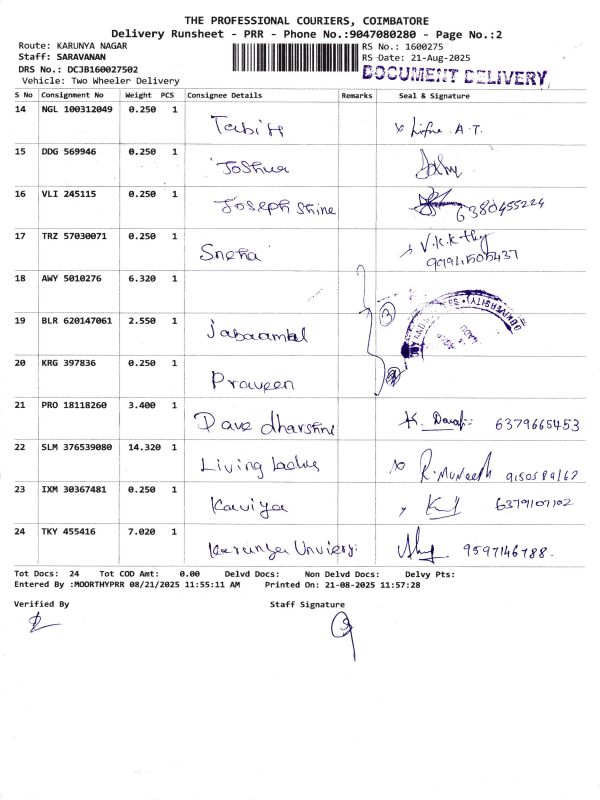 THE PROFESSIONAL COURIERS, COIMBATORE
Delivery Runsheet - PRR - Phone No.:9047080280 - Page No.:2
Route: KARUNYA NAGAR
RS No.: 1600275
Staff: SARAVANAN
RS Date: 21-Aug-2025
DRS No.: DCJB160027502
DOCUMENT DELIVERY
Vehicle: Two Wheeler Delivery
S No Consignment No Weight PCS Consignee Details Remarks Seal & Signature
14 NGL 100312049 0.250 1
A.T.
15 DDG 569946 0.250 1 Joshua
16 VLI 245115 0.250 1 Joseph Shine 6380455224
17 TRZ 57030071 0.250 1 Sneha
18 AWY 5010276 6.320 1
19 BLR 620147061 2.550 1
20 KRG 397836 0.250 1 Praveen
21 PRO 18118260 3.400 1 6379665453
22 SLM 376539080 14.320 1 Living
23 IXM 30367481 0.250 1 Kaviya 6379107102
24 TKY 455416 7.020 1 Karunya 9597146788.
Tot Docs: 24 Tot COD Amt: 0.00 Delvd Docs: Non Delvd Docs: Delvy Pts:
Entered By :MOORTHYPRR 08/21/2025 11:55:11 AM Printed On: 21-08-2025 11:57:28
Verified By
Staff Signature